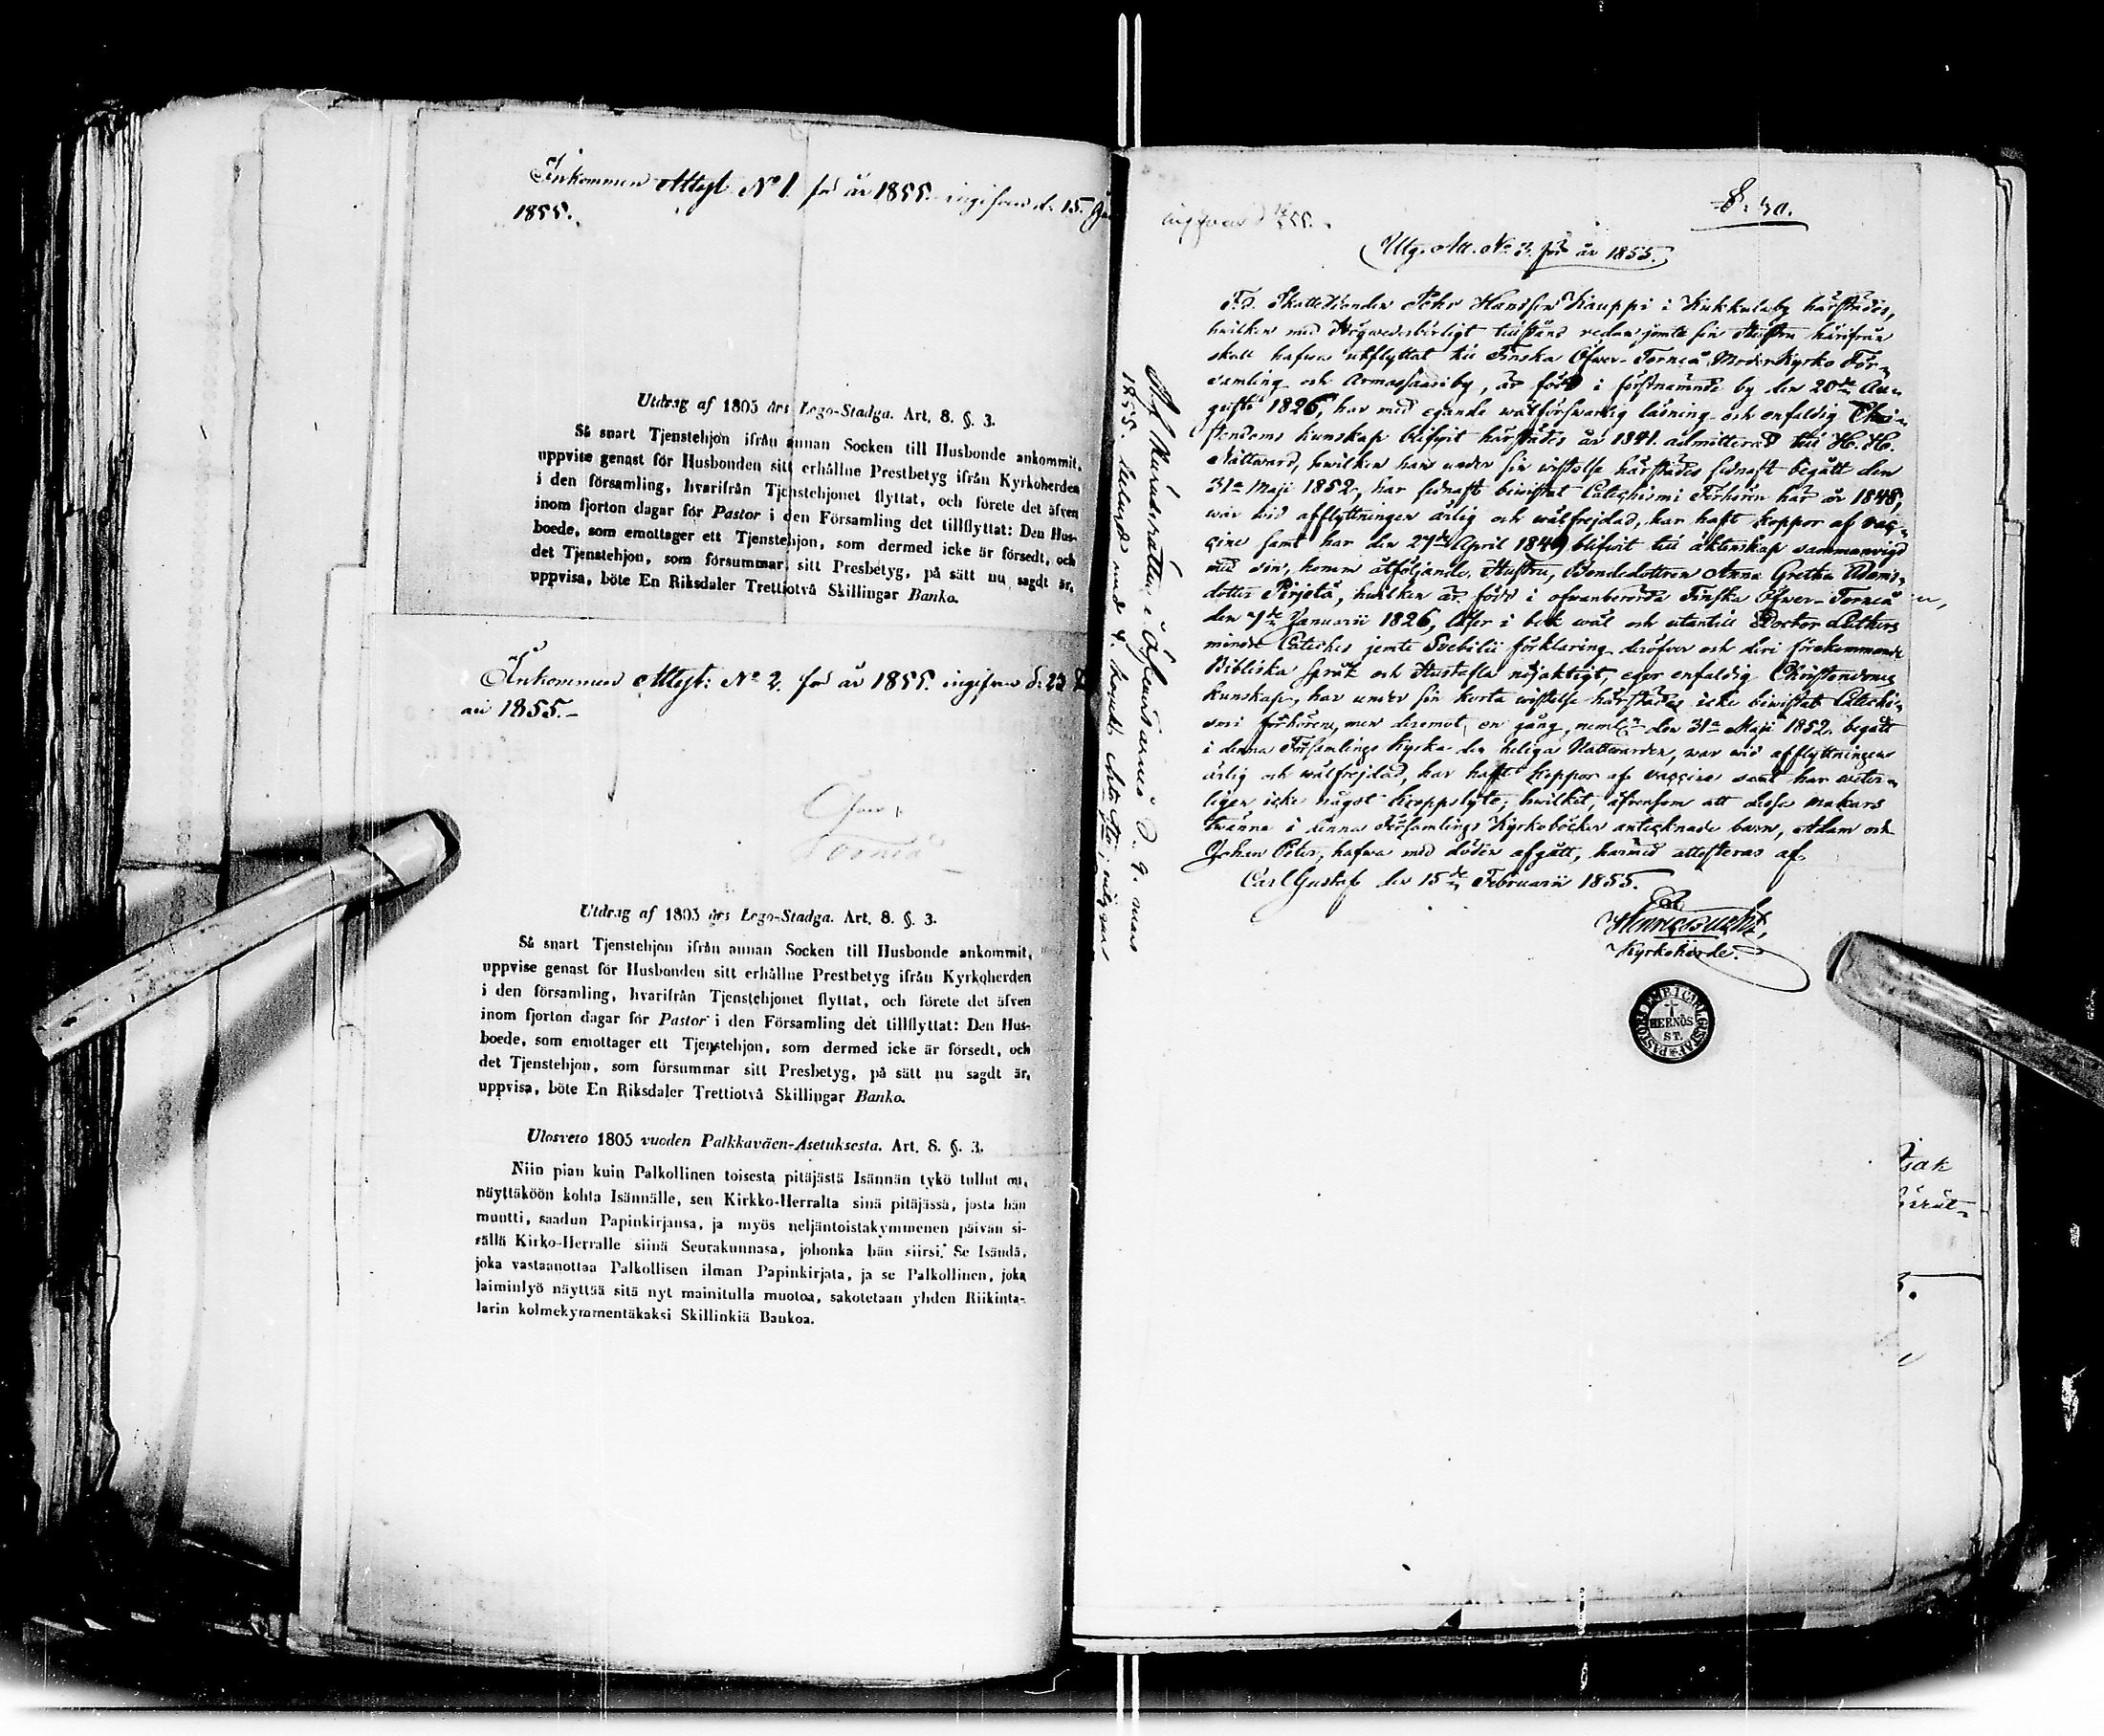 Inkommen Attest. No 1. för år 1855. ingifven d. 15.
1855.
Utdrag af 1805 års Lego-Stadga. Art. 8. §. 3.
Så snart Tjenstehjon ifrån annan Socken till Husbonde ankommit,
uppvise genast för Husbonden sitt erhållne Prestbetyg ifrån Kyrkoherden
i den församling, hvarifrån Tjenstehjonet flyttat, och förete det äfven
inom fjorton dagar för Pastor i den Församling det tillflyttat: Den Hus-
boede, som emottager ett Tjenstehjon, som dermed icke är försedt, och
det Tjenstehjon, som försummar sitt Presbetyg, på sätt nu sagdt är,
uppvisa, böte En Riksdaler Trettiotvå Skillingar Banko.
Inkommen Attest: No 2. för år 1855. ingifven d. 23
ari 1855.-
Öfver
Torneå
Utdrag af 1805 års Lego-Stadga. Art. 8. §. 3.
Så snart Tjenstehjon ifrån annan Socken till Husbonde ankommit,
uppvise genast för Husbonden sitt erhållne Prestbetyg ifrån Kyrkoherden
i den församling, hvarifrån Tjenstehjonet flyttat, och förete det äfven
inom fjorton dagar för Pastor i den Församling det tillflyttat: Den Hus-
boede, som emottager ett Tjenstehjon, som dermed icke är försedt, och
det Tjenstehjon, som försummar sitt Presbetyg, på sätt nu sagdt är,
uppvisa, böte En Riksdaler Trettiotvå Skillingar Banko.
Ulosveto 1805 vuoden Palkkaväen-Asetuksesta. Art. 8. §. 3.
Niin pian kuin Palkollinen toisesta pitäjästä Isännän tykö tullut on,
näyttäköön kohta Isännälle, sen Kirkko-Herralta sinä pitäjässä, josta hän
muutti, saadun Papinkirjansa, ja myös neljäntoistakymmenen päivän si-
sällä Kirko-Herralle siinä Seurakunnasa, johonka hän siirsi. Se Isändä,
joka vastaanottaa Palkollisen ilman Papinkirjata, ja se Palkollinen, joka
laiminlyö näyttää sitä nyt mainitulla muotoa, sakotetaan yhden Riikinta-
larin kolmekymmentäkaksi Skillinkiä Bankoa.
Utg. Att. No 3. för år 1855.
F.d. Skattebonden Pehr Hansson Kauppi i Kukkulaby härstädes,
hwilken med tillstånd redan jemte sin Hustru härifrån
skall hafwa utflyttat till Finska Öfwer-Torneå Moder Kyrko För-
samling och Armassaari by, är född i förstnämnde by den 20de Au-
gusti 1826, har med egande wälförswarlig läsning och enfaldig Chri-
stendoms kunskap blifvit härstädes år 1841. admitterad till H. H.
Nattward, hwilken han under sin wistelse härstädes sednast begått den
31a Maji 1852, har sednast bewistat Catechismi Förhören här år 1848,
war wid afflyttningen ärlig och wälfrejdad, har haft koppor af vac-
cine samt har den 27de April 1849 blifwit till äktenskap sammanvigd
med sin, honom åtföljande, Hustru, Bondedottren Anna Gretha Adams-
dotter Pirjetä, hwilken är född i ofwanberörda Finska Öfwer-Torneå
den 7de Januarii 1826, läser i bok wäl och utantill Doctor Luthers
mindre Cateches jemte Svebilii förklaring deröfver och deri förekommande
Bibliska språk och Hustafla nöjaktigt, eger enfaldig Christendoms
kunskap, har under sin korta wistelse härstädes icke bewistat Catechi-
smi förhören, men deremot en gång, neml. den 31a Maji 1852. begått
i denna Församlings Kyrka den heliga Nattwarden, war wid afflyttningen
ärlig och wälfrejdad, har haft koppor af vaccine samt har weter-
ligen icke något kroppslyte; hwilket, äfwensom att desse makars
twänne i denna Församlings Kyrkoböcker antecknade barn, Adam och
Johan Peter, hafwa med döden afgått, härmed attesteras af
Carl Gustaf den 15de Februarii 1855.
Kyrkoherde.
PASTORS EMB. I CARL GUSTAF
HERNÖS
ST.
Af Häradsrätten i d. 9. mars
1855.